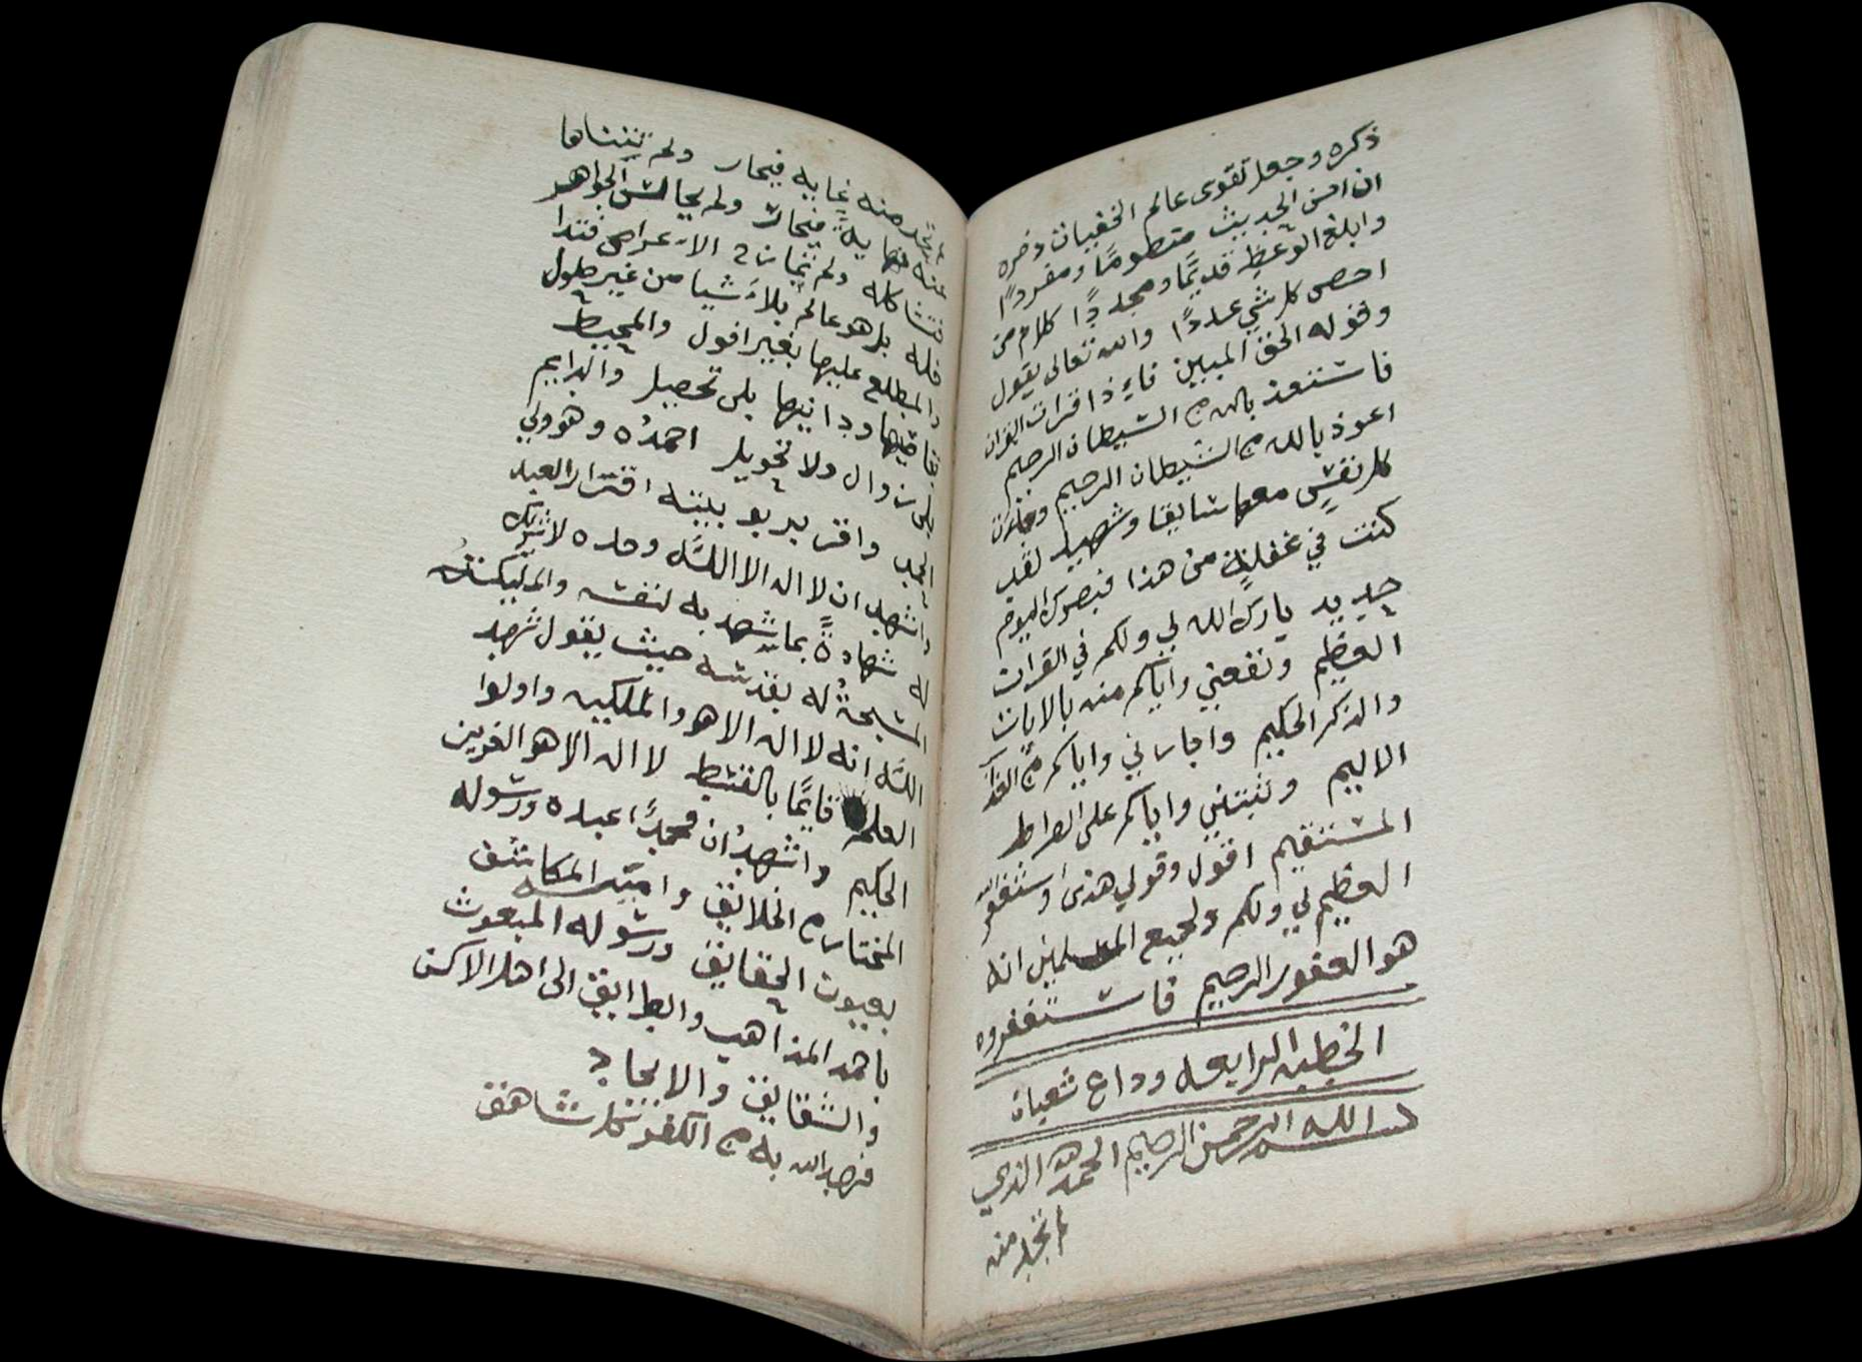 ذكره وجعل تقوى عالم الخفيات ذخره
ان احسن الحديث منظومًا ومفردًا
وابلغ الوعظ قديمًا ومجددًا كلام من
احصى كل شي عددًا والله تعالى يقول
وقوله الحق المبين فاذا قرات القران
فاستعذ بالله من الشيطان الرجيم
اعوذ بالله من الشيطان الرجيم وجات
كل نفسٍ معها سايق وشهيد لقد
كنت في غفلةٍ من هذا فبصرك اليوم
حديد بارك الله لي ولكم في القران
العظيم ونفعني واياكم منه بالايات
والذكر الحكيم واجارني واياكم من العذاب
الاليم وثبتني واياكم على الصراط
المستقيم اقول وقولي هذا واستغفر الله
العظيم لي ولكم ولجميع المسلمين انه
هو الغفور الرحيم فاستغفروه
الخطبه الرابعه وداع شعبان
بسم الله الرحمن الرحيم الحمد لله الذي
لم تحد منه
لم تحد منه غايه فيحاز ولم تتناها
عنه نهاية فيجاز ولم يجالس الجواهر
فتشاكله ولم تمازج الاعراض فتدا
خله بل هو عالم بالاشيا من غير حلول
والمطلع عليها بغير افول والمحيط
بقاصيها ودانيها بلى تحصيل والدايم
بلى زوال ولا تحويل احمدُه وهو ولي
الحمد واقر بربوبيته اقرار العبد
واشهد ان لا اله الا الله وحده لا شريك
له شهادةً بما شهد به لنفسه والمليكته
المسبحةُ له بقدسه حيث يقول شهد
الله انه لا اله الا هو والملكيه واولوا
العلم قايمًا بالقسط لا اله الا هو العزيز
الحكيم واشهدُ ان محمدًا عبده ورسوله
المختار من الخلايق وامينه المكاشف
بعيون الحقايق ورسوله المبعوث
باحمد المذاهب والطرايق الى اهل الاكن
والشقايق والايجاد
فهد الله به من الكفر كل شاهق